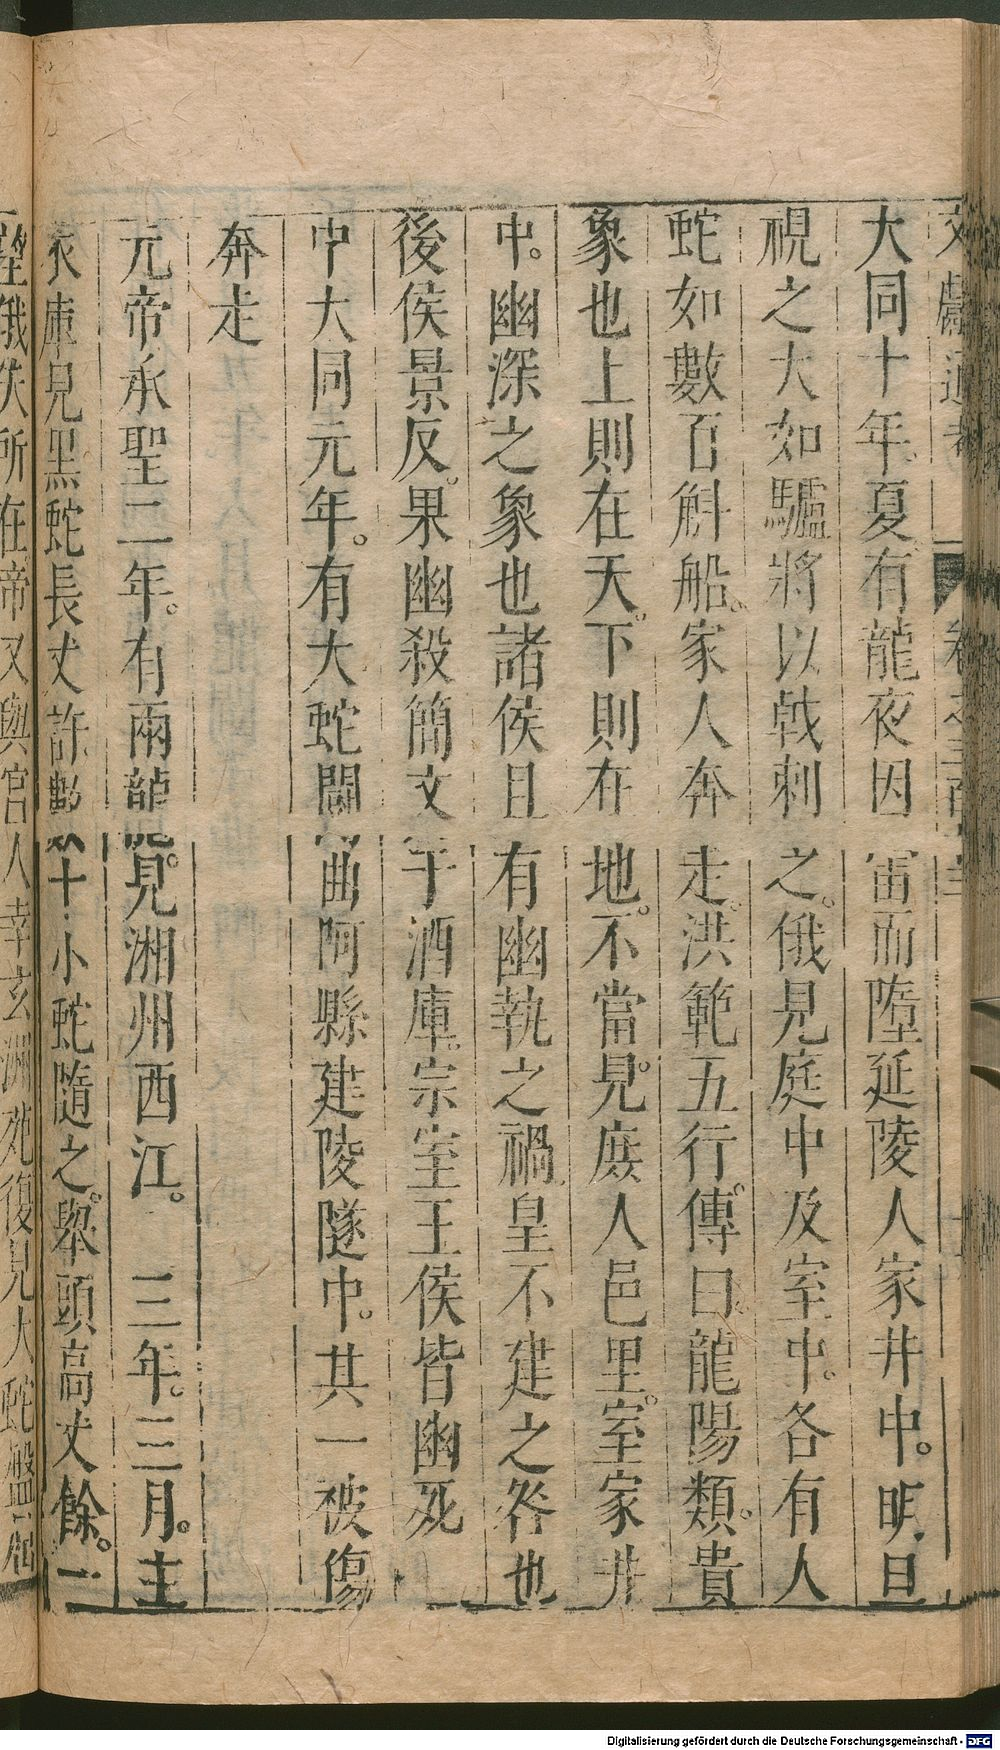 文獻通考 卷之三百十三
大同十年。夏有龍夜因雷而墮延陵人家井中。明旦
視之大如驢將以戟刺之。俄見庭中及室中。各有人
蛇如數百斛船。家人奔走。洪範五行傳曰。龍陽類。貴
象也上則在天。下則在地。不當見庶人邑里。室家井
中。幽深之象也諸侯且有幽執之禍皇不建之咎也
後侯景反。果幽殺簡文于酒庫。宗室王侯皆幽死
中大同元年。有大蛇鬬曲阿縣建陵隧中。其一被傷
奔走
元帝承聖二年。有兩龍見湘州西江。 三年。三月。主
衣庫見黑蛇長丈許數十小蛇隨之。舉頭高丈餘。一
望俄失所在帝又與宮人幸玄洲苑復見大蛇盤屈
Digitalisierung gefördert durch die Deutsche Forschungsgemeinschaft - DFG